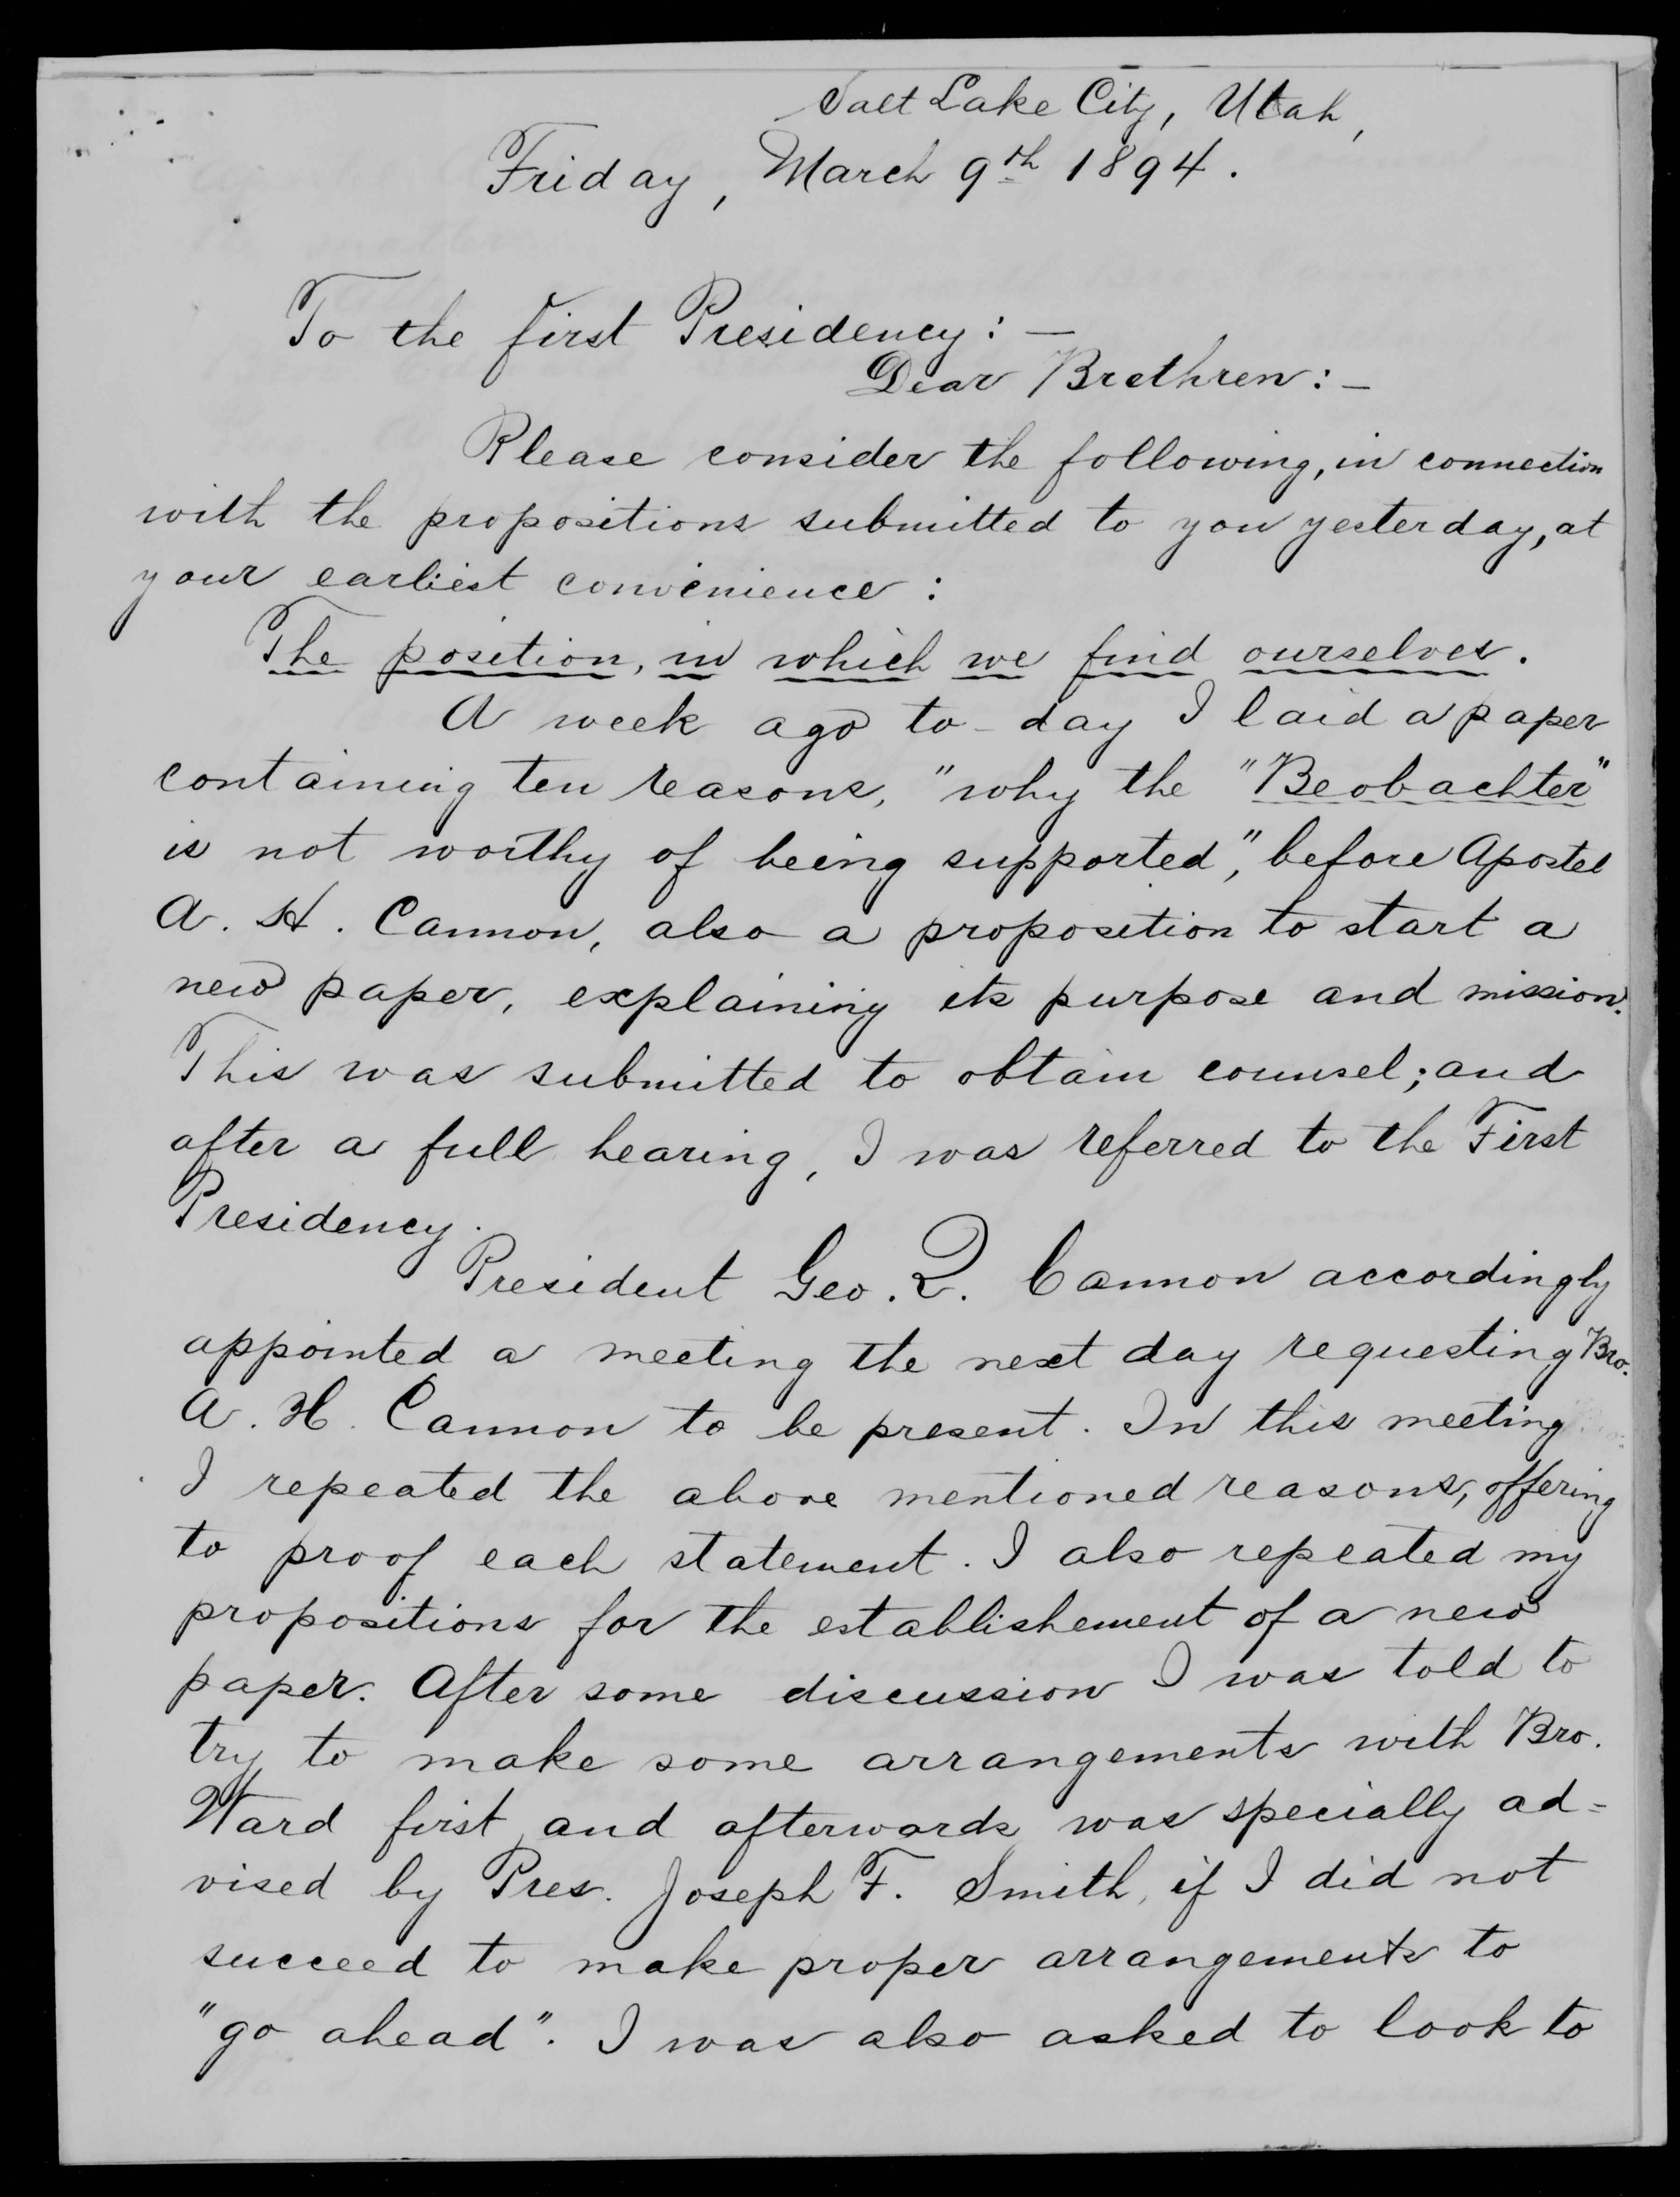 Salt Lake City, Utah,
Friday, March 9th 1894.
To the first Presidency: —
Dear Brethren: —
Please consider the following, in connection
with the propositions submitted to you yesterday, at
your earliest convenience:
The position, in which we find ourselves.
A week ago to-day I laid a paper
containing ten reasons, "why the "Beobachter"
is not worthy of being supported", before Apostel
A. H. Cannon, also a proposition to start a
new paper, explaining its purpose and mission.
This was submitted to obtain counsel; and
after a full hearing, I was referred to the First
Presidency.
President Geo. Q. Cannon accordingly
appointed a meeting the next day requesting Bro.
A. H. Cannon to be present. In this meeting
I repeated the above mentioned reasons, offering
to proof each statement. I also repeated my
propositions for the establishement of a new
paper. After some discussion I was told to
try to make some arrangements with Bro.
Ward first, and afterwards was specially ad=
vised by Pres. Joseph F. Smith, if I did not
succeed to make proper arrangements to
"go ahead". I was also asked to look to